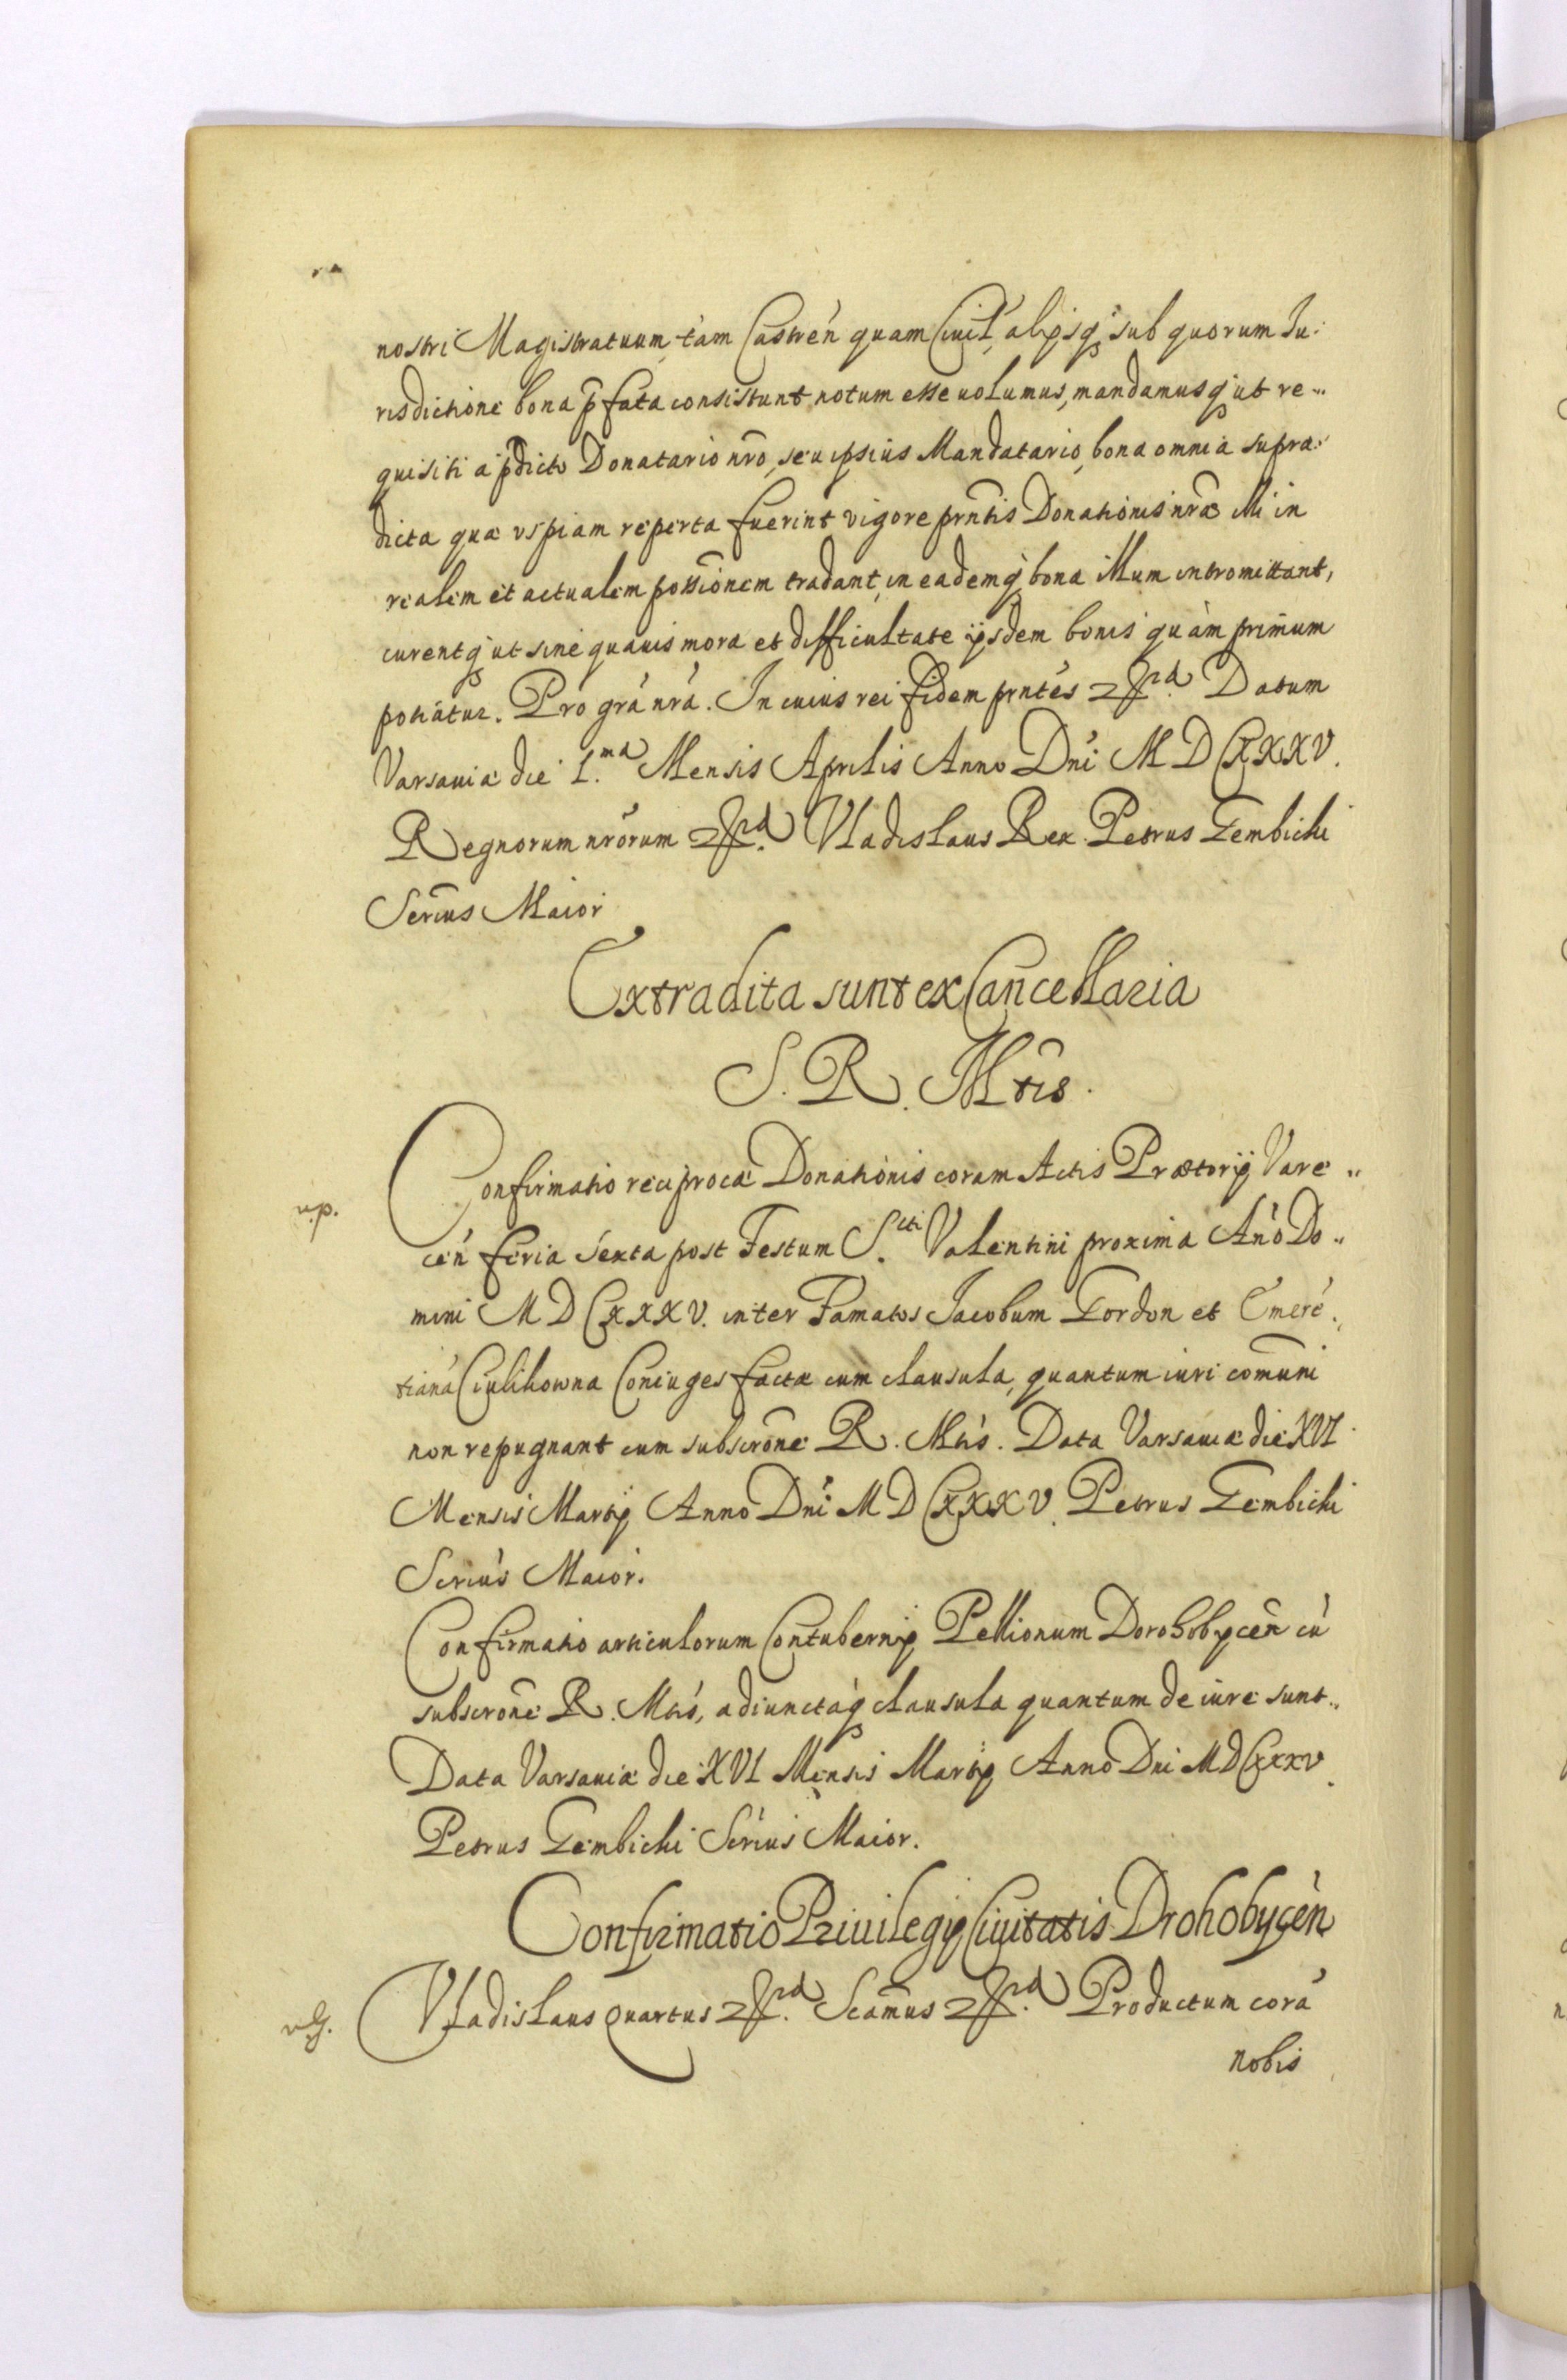 nostri Magistratuum, tàm Castreń quam Ciuil, alijsq́ sub quorum Iu:
risdictione bona p̄fata consistunt notum esse uolumus, mandamusq́ ut re..
quisiti a p̄dicto Donatario nr̄o, seu ipsius Mandatario, bona omnia supra:
dicta quæ vspiam reperta fuerint vigore pr̄ntis Donationis nr̄æ illi in
realem et actualem possīonem tradant, in eademq́ bona illum intromittant,
curentq́ ut sine quauis mora et difficultate ijsdem bonis quàm primum
potiatur. Pro grá nrá. In cuius rei fidem prntés
Datum
Varsauiæ die 1.ma Mensis Aprilis Anno Dńi MDCXXXV.
Regnorum nrórum
Vladislaus Rex Petrus Gembicki
Secrīus Maior
Extradita sunt ex Cancellaria
S. R. Mtis.
u.p.
Confirmatio reciprocæ Donationis coram Actis Prætorij Vare..
ceń feria sexta post Festum S.cti Valentini proxima Anó Do..
mini MDCXXXV. inter Famatos Jacobum Gordon et Emeré.,
tianá Ciulikowna Coniuges factæ cum clausula, quantum iuri com̄uni
non repugnant cum subscrōne R. Mtis. Data Varsauiæ die XVI
Mensis Martij Anno Dńi MDCXXXV. Petrus Gembicki
Secríus Maior.
Confirmatio articulorum Contubernij Pellionum Dorohobyceñ cú
subscrōne R. Mtis, adiunctáq́ clausula quantum de iure sunt..
Data Varsauiæ die XVI Mensis Martij Anno Dni MDCXXXV.
Petrus Gembicki Secríus Maior.
Confirmatio Priuilegij Ciuitatis Drohobyceń
Vladislaus quartus
Productum corá
nobis